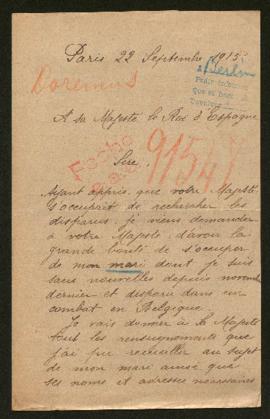 Paris 22 Septembre 1915
Doremus
Berlin
A sa Majesté le Roi d'Espagne
Sire,
Fecho
91547
Ayant appris que votre Majesté
s'occupait de rechercher les
disparus, je viens demander
à votre Majesté d'avoir la
grande bonté de s'occuper
de mon mari dont je suis
sans nouvelles depuis novembre
dernier et disparu dans un
combat en Belgique.
Je vais donner à Sa Majesté
tout les renseignements que
j'ai pu recueillir au sujet
de mon mari ainsi que
ses noms et adresses nécessaires